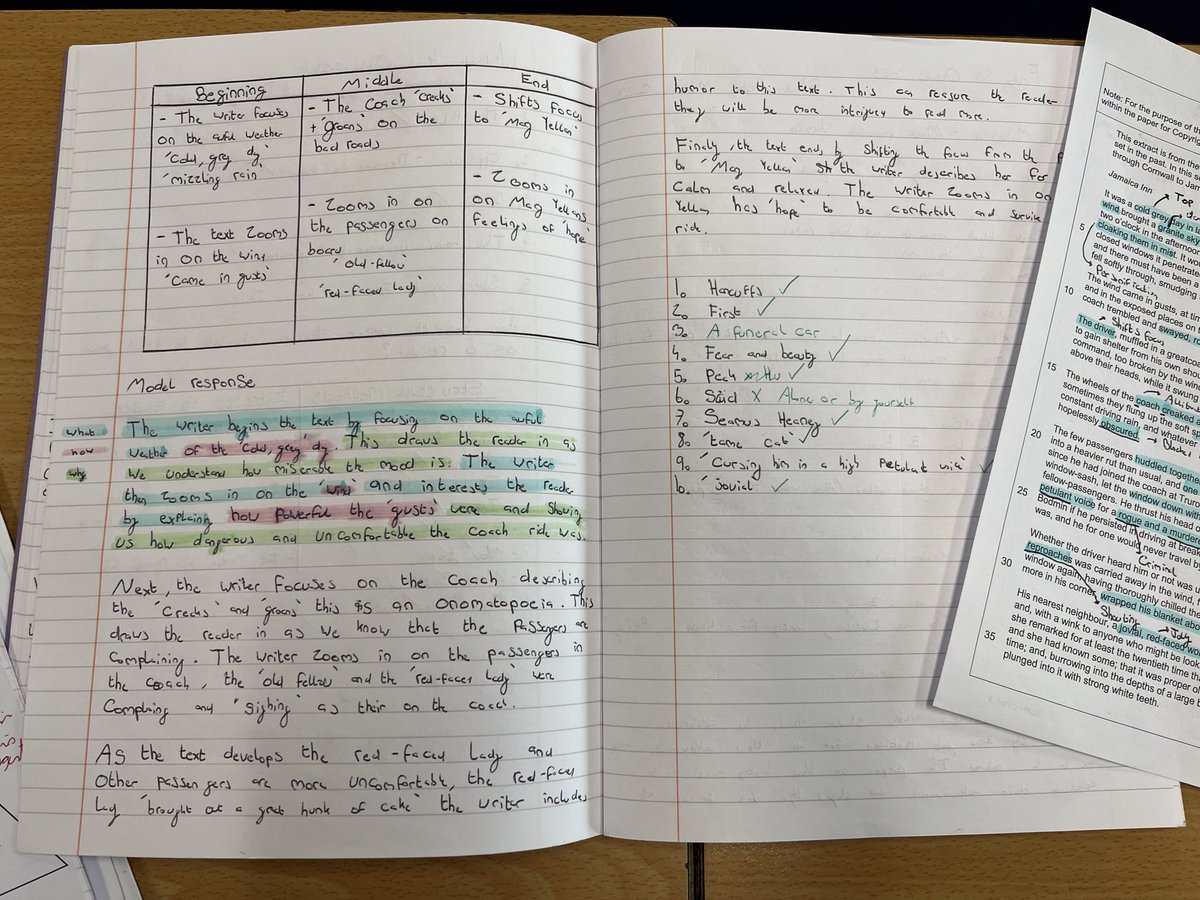 Beginning
- The writer focuses
on the awful weather
'Cold, grey dy,'
'mizzling rain'
- The text Zooms
in on the wind
'Came in gusts'
Middle
- The Coach 'Creeks'
+ 'groans' on the
bad roads
- Zooms in on
the passengers on
board
'old-fellow'
'red-faced lady'
End
- Shifts focus
to 'Mag Yellan'
- Zooms in
on Mag Yellans
feelings of 'hope'
Model response
what
how
why
The writer begins the text by focusing on the awful
weather of the 'cold, grey' dy. This draws the reader in as
we understand how miserable the mood is. The writer
then zooms in on the 'wind' and interests the reader
by explaining how powerful the 'gusts' were and showing
us how dangerous and uncomfortable the coach ride was.
Next, the writer focuses on the Coach describing
the 'Creeks' and 'groans' this is an onomatopoeia. This
draws the reader in as we know that the passengers are
Complaining. The writer zooms in on the passengers in
the coach, the 'old fellow' and the 'red-faces lady' were
Complaining and 'Sighing' as their on the coach.
As the text develops the red-faced Lady and
Other passengers are more uncomfortable, the red-faces
lay 'brought out a gret hunk of cake' the writer includes
humor to this text. This can reasure the reader
they will be more intrijury to read more.
Finaly, the text ends by shifting the focus from the
to 'Mag Yellan' the writer describes her for
Calm and relaxed. The writer zooms in on
Yellan has 'hope' to be comfortable and survive
ride.
1. Hancuffs ✓
2. First ✓
3. A funeral car
4. Fear and beauty ✓
5. Peak ✓
6. Said X Alone or by yourself
7. Seamus Heaney ✓
8. 'tame cat' ✓
9. 'Cursing him in a high petulant voice' ✓
10. 'Jovial' ✓
Note: For the purpose of
within the paper for Copyrig
This extract is from the
set in the past. In this se
through Cornwall to Jam
Jamaica Inn
→ Top
It was a cold grey day in la
wind brought a granite sky
two o'clock in the afternoon
5 cloaking them in mist. It wou
closed windows it penetrate
and there must have been a
fell softly through, smudging
Personification
The wind came in gusts, at tim
10 and in the exposed places on
coach trembled and swayed, ro
→ Shifts focus
The driver, muffled in a greatcoa
to gain shelter from his own shou
command, too broken by the wind
above their heads, while it swung
15
The wheels of the coach creaked a
sometimes they flung up the soft sp
constant driving rain, and whatever
hopelessly obscured.
20
The few passengers huddled togethe
into a heavier rut than usual, and one
since he had joined the coach at Truro
window-sash, let the window down with
fellow-passengers. He thrust his head o
25 petulant voice for a rogue and a murdere
Bodmin if he persisted in driving at break
was, and he for one would never travel by
Criminal
Whether the driver heard him or not was u
reproaches was carried away in the wind, f
30 window again, having thoroughly chilled the
more in his corner, wrapped his blanket abo
Shouting
→ Jolly
His nearest neighbour, a jovial, red-faced wo
and, with a wink to anyone who might be look
she remarked for at least the twentieth time th
35 and she had known some; that it was proper o
time; and, burrowing into the depths of a large b
plunged into it with strong white teeth.